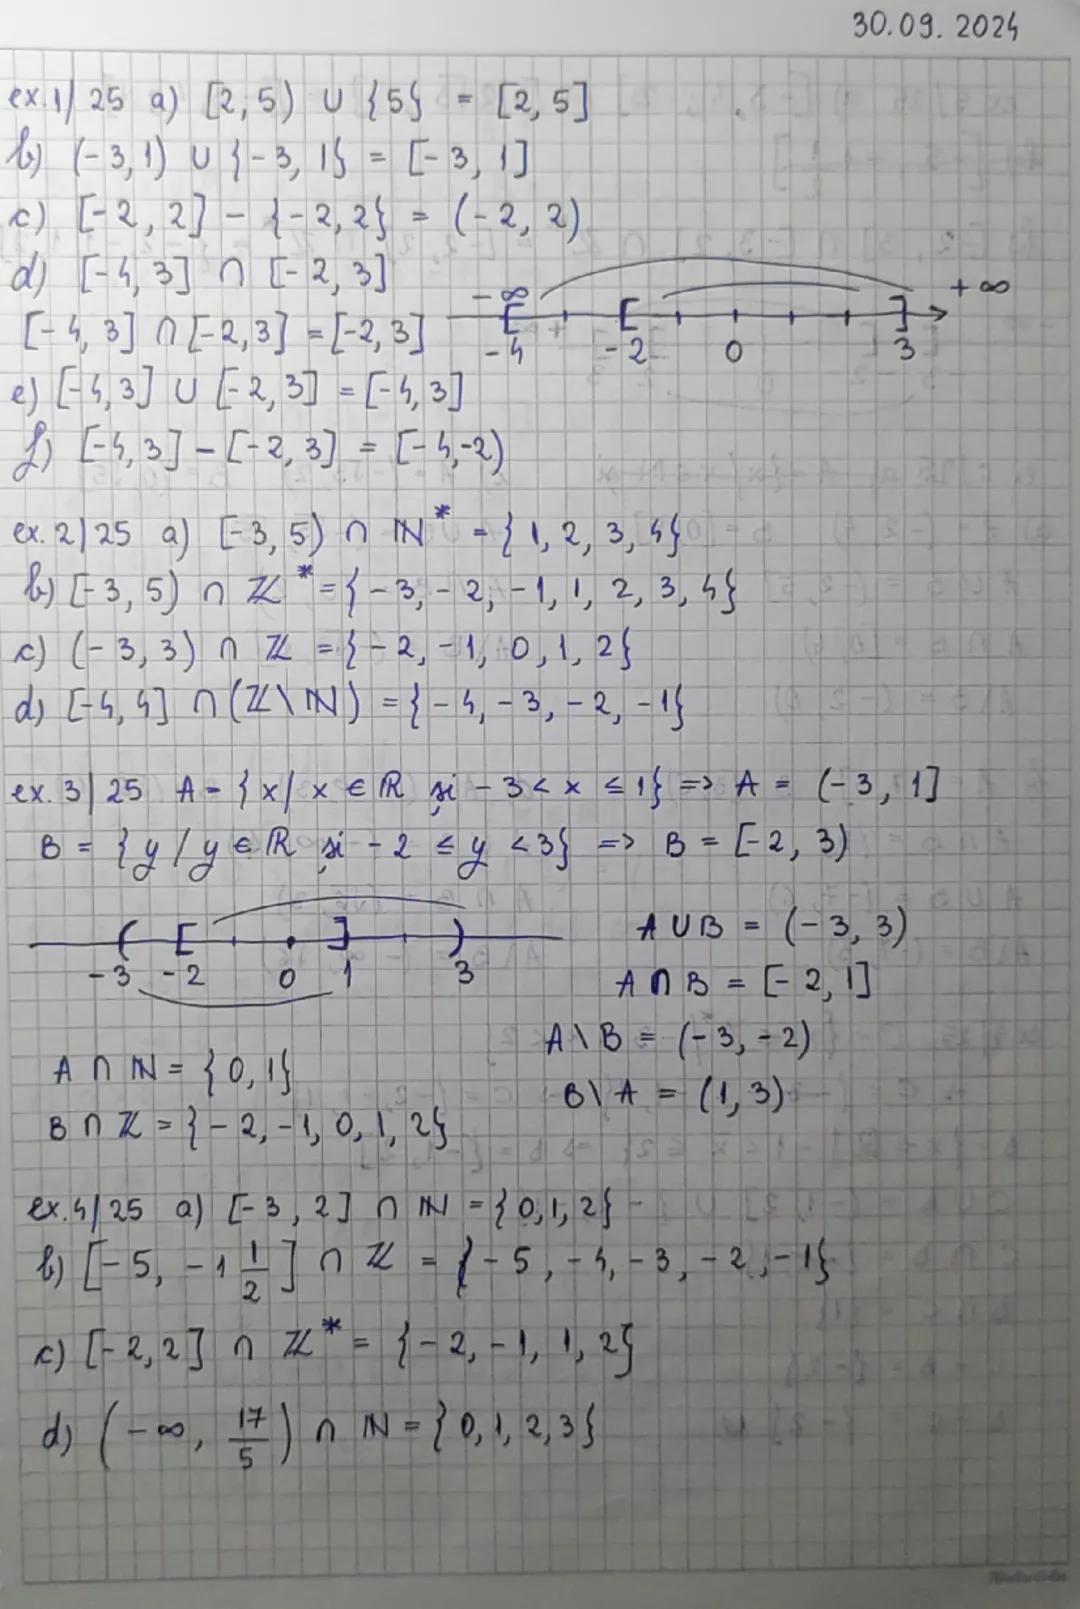 30.09.2024
ex.1/25 a) [2,5) ∪ {5} = [2,5]
b) (-3,1) ∪ {-3, 1} = [-3, 1]
c) [-2, 2] - {-2,2} = (-2, 2)
d) [-4,3] ∩ [-2,3]
-∞ +∞
[-4,3] ∩ [-2,3] = [-2,3]
-4 -2 0 3
e) [-4,3] ∪ [-2,3] = [-4,3]
f) [-4,3] - [-2,3] = [-4,-2)
ex.2/25 a) [-3,5) ∩ ℕ* = {1, 2, 3, 4}
b) [-3,5) ∩ ℤ* = {-3, -2, -1, 1, 2, 3, 4}
c) (-3,3) ∩ ℤ = {-2, -1, 0, 1, 2}
d) [-4,4] ∩ (ℤ\ℕ) = {-4, -3, -2, -1}
ex.3/25 A = {x/ x ∈ ℝ și -3 < x ≤ 1} => A = (-3, 1]
B = {y / y ∈ ℝ și -2 ≤ y < 3} => B = [-2, 3)
-3 -2 0 1 3
A ∪ B = (-3, 3)
A ∩ B = [-2, 1]
A \ B = (-3, -2)
B \ A = (1, 3)
A ∩ ℕ = {0, 1}
B ∩ ℤ = {-2, -1, 0, 1, 2}
ex.4/25 a) [-3, 2] ∩ ℕ = {0, 1, 2}
b) [-5, -1 1/2] ∩ ℤ = {-5, -4, -3, -2, -1}
c) [-2,2] ∩ ℤ* = {-2, -1, 1, 2}
d) (-∞, 17/5) ∩ ℕ = {0, 1, 2, 3}